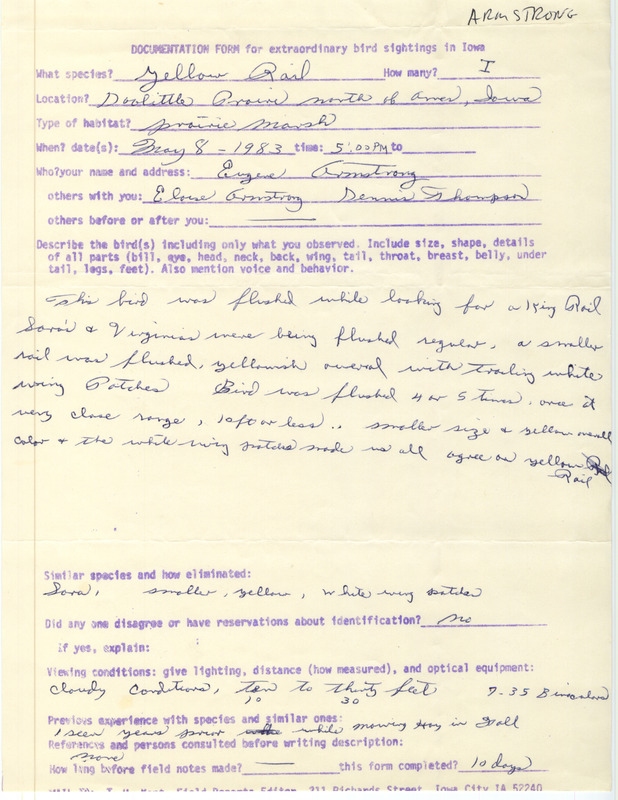 ARMSTRONG
DOCUMENTATION FORM for extraordinary bird sightings in Iowa
What species? Yellow Rail How many? I
Location? Doolittle Prairie north of Ames, Iowa
Type of habitat? prairie marsh
When? date(s): May 8-1983 time: 5:00PM to
Who?your name and address: Eugene Armstrong
others with you: Eloise Armstrong Dennis Thompson
others before or after you: ———
Describe the bird(s) including only what you observed. Include size, shape, details
of all parts (bill, eye, head, neck, back, wing, tail, throat, breast, belly, under
tail, legs, feet). Also mention voice and behavior.
This bird was flushed while looking for a King Rail
Sora's & Virginias were being flushed regular, a smaller
rail was flushed, yellowish overal with trailing white
wing Patches Bird was flushed 4 or 5 times, once at
very close range, 10 ft or less.. smaller size & yellow overall
color & the white wing patches made us all agree on yellow
Rail
Similar species and how eliminated:
Sora, smaller, yellow, white wing patches
Did any one disagree or have reservations about identification? no
if yes, explain:
Viewing conditions: give lighting, distance (how measured), and optical equipment:
Cloudy Conditions, ten to thirty feet 7-35 Binoculars
10 30
Previous experience with species and similar ones:
1 seen years prior while mowing Hay in Fall
References and persons consulted before writing description:
none
How long before field notes made? — this form completed? 10 days
MAIL TO: Field Reports Editor, 211 Richards Street, Iowa City IA 52240